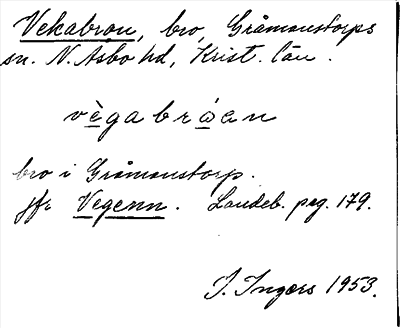 Vekabron, bro, Gråmanstorps
sn. N. Åsbo hd, Krist. län.
vègabrὼan
bro i Gråmanstorp.
jfr Vegenn. Landeb. pag. 179.
I. Ingers 1953.